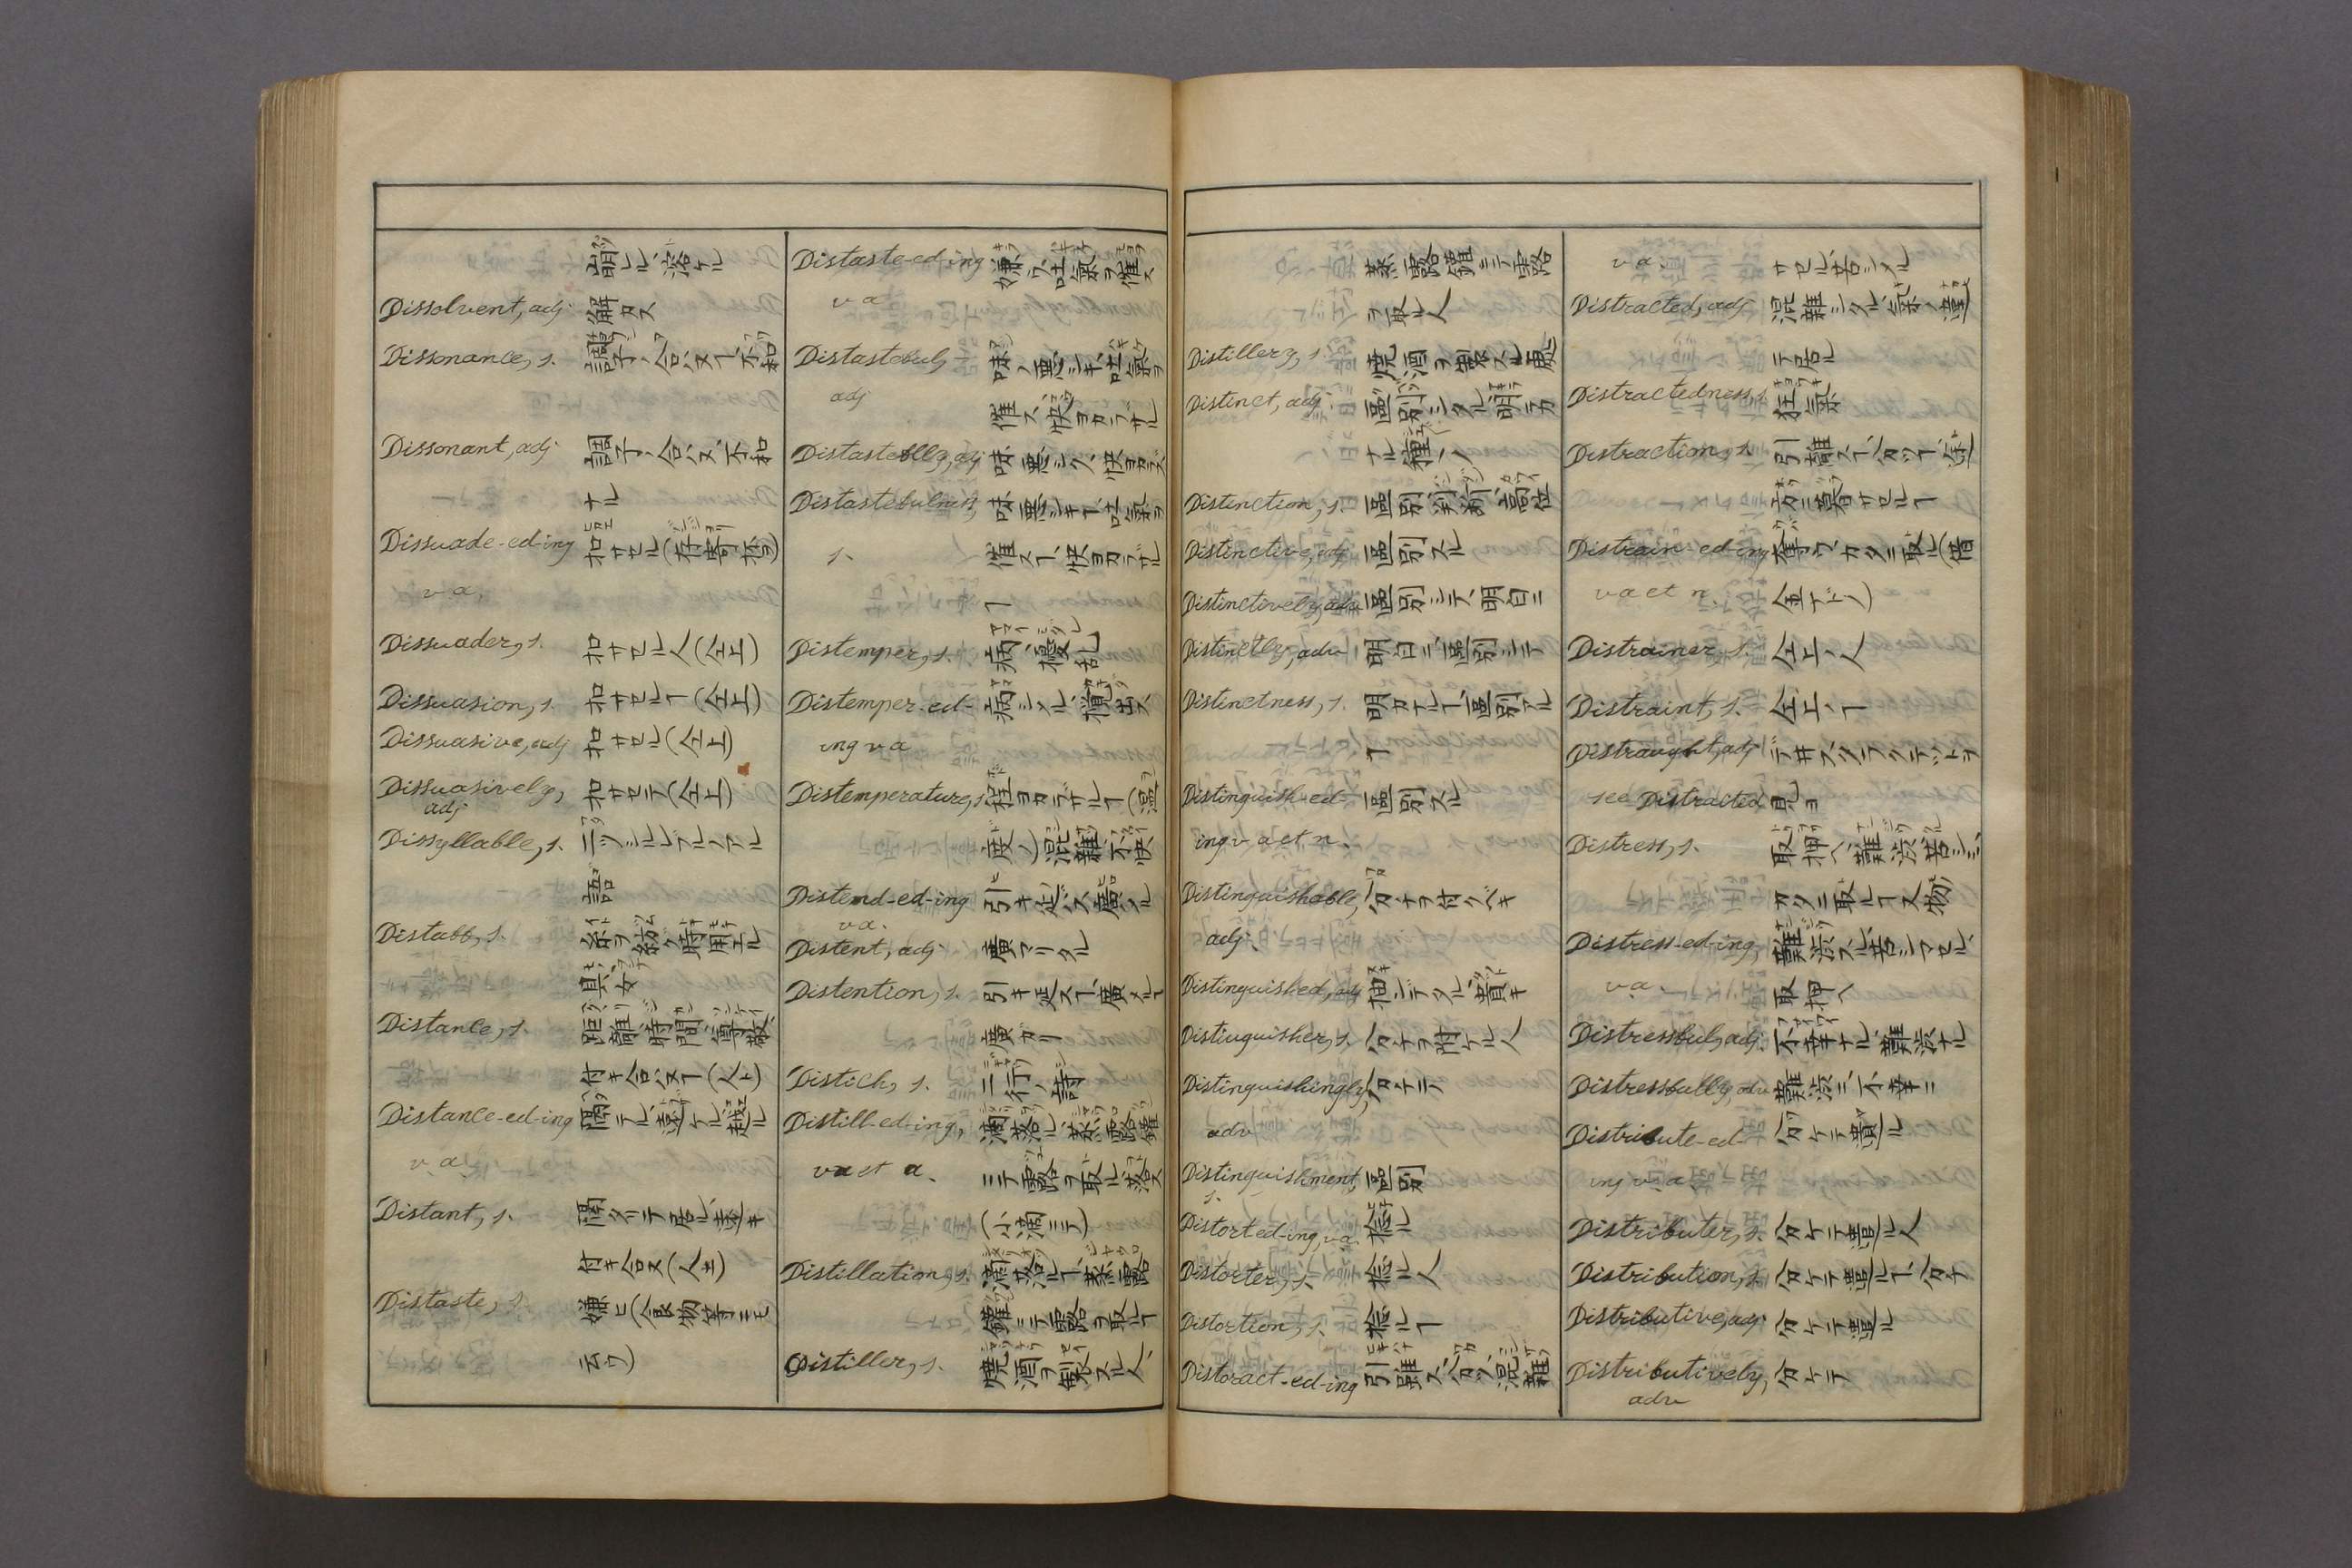 崩レル、溶ケル
Dissolvent, adj 解カス
Dissonance, s. 調子ノ合ハヌ𬼀、不和
Dissonant, adj 調子ノ合ハヌ、不和
ナル
Dissuade-ed-ing 扣サセル(存寄抔ヲ)
v a.
Dissuader, s. 扣サセル人(仝上)
Dissuasion, s. 扣サセル𬼀(仝上)
Dissuasive, adj 扣サセル(仝上)
Dissuasively, 扣サセテ(仝上)
adj
Dissyllable, s. 二ツシルレブルノアル
語
Distaff, s. 糸ヲ紡グ時用エル
具、女
Distance, s. 距離、時間、尊敬、
付キ合ハヌ𬼀(人ト)
Distance-ed-ing 隔テル、遠ケル、越ル
v. a.
Distant, s. 隔タリテ居ル、遠キ
付キ合ヌ(人ト)
Distaste, s. 嫌ヒ(食物等ニモ
云ウ)
Distaste-ed-ing 嫌ウ、吐氣ヲ催ス
v a
Distasteful, 味ノ悪シキ、吐氣ヲ
adj 催ス、快ヨカラザル
Distastefully, adj 味悪シク、快ヨカラズ
Distastefulness, 味悪シキ𬼀、吐氣ヲ
s. 催ス𬼀、快ヨカラザル
𬼀
Distemper, s. 病、擾乱
Distemper-ed- 病シメル、擾出ス
ing v a
Distemperature, s. 程ヨカラザル𬼀(温
度ノ)混雜、不快
Distend-ed-ing 引キ延バス、廣メル
v a.
Distent, adj 廣マリタル
Distention, s. 引キ延ス𬼀、廣メル𬼀
廣ガリ
Distich, s. 二行ノ詩
Distill-ed-ing, 滴落ル、蒸露鑵
va et a. ニテ露ヲ取ル、落ス
(小滴ニテ)
Distillation, s. 滴落ル𬼀、蒸露
鑵ニテ露ヲ取ル𬼀
Distiller, s. 燒酒ヲ製スル人、
蒸露鑵ニテ露
ヲ取ル人
Distillery, s. 燒酒ヲ製スル處
Distinct, adj 區別シタル、明ラカ
ナル、種々ノ
Distinction, s. 區別、判断、高位
Distinctive, adj 區別スル
Distinctively, adv 區別シテ、明白ニ
Distinctly, adv 明白ニ、區別シテ
Distinctness, s. 明カナル𬼀、區別アル
𬼀
Distinguish-ed- 區別スル
ing v a et n.
Distinguishable, 分ケヲ付クベキ
adj.
Distinguished, adj 抽ンデタル、貴キ
Distinguisher, s. 分ケヲ附ケル人
Distinguishingly, 分ケテ
adv
Distinguishment, 區別
s.
Distort-ed-ing, v a. 捻ル
Distorter, s. 捻ル人
Distortion, s. 捻ル𬼀
Distoract-ed-ing 引離ス、分ツ、混雜
v a. サセル、苦シメル
Distracted, adj 混雜シタル、氣ノ違
テ居ル
Distractedness, s 狂氣
Distraction, s. 引離ス𬼀、分ツ𬼀、途
方ニ暮サセル𬼀
Distrain-ed-ing, 奪ウ、カタニ取ル(借
va et n. 金ナドノ)
Distrainer, s. 仝上ノ人
Distraint, s. 仝上ノ𬼀
Distraught, adj ヂスタラクテットヲ
see Distracted 見ヨ
Distress, s. 取押ヘ、難渋、苦シミ、
カタニ取ル𬼀、又物
Distress-ed-ing, 難渋スル、苦シマセル、
v a. 取押ヘ
Distressful, adj. 不幸ナル、難渋ナル
Distressfully, adv 難渋ニ、不幸ニ
Distribute-ed- 分ケテ遣ル
ing v. a.
Distributer, s. 分ケテ遣ル人
Distribution, s. 分ケテ遣ル𬼀、分ケ
Distributive, adj. 分ケテ遣ル
Distributively, 分ケテ
adv